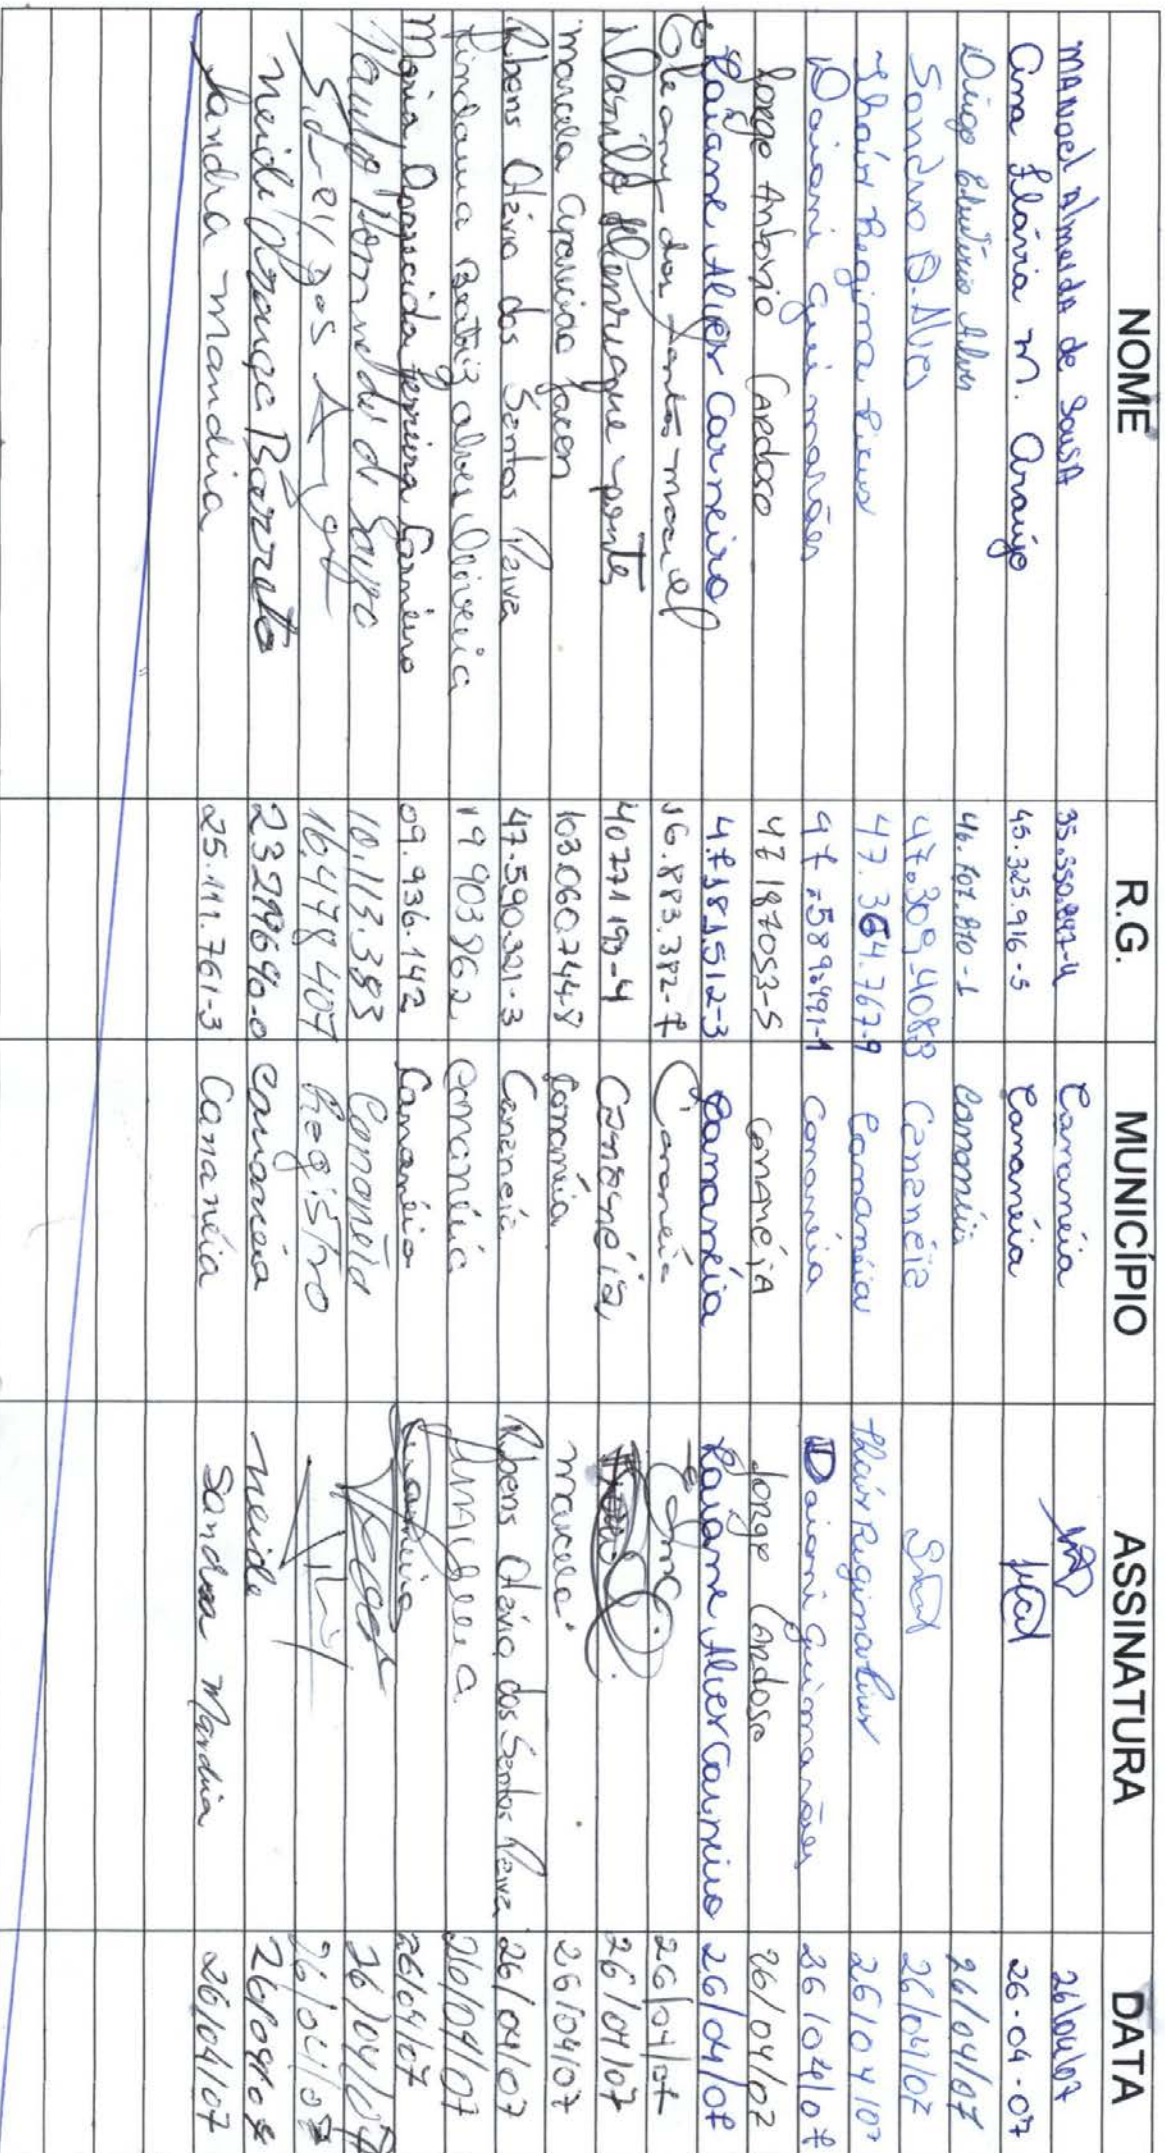 NOME R.G. MUNICÍPIO ASSINATURA DATA
MANOEL Almeida de SousA 35.550.847-4 Cananéia 26/04/07
Ana Flávia M. Araújo 45.325.916-5 Cananéia 26-04-07
Diego Eleutério Alves 46.707.870-1 Cananéia 26/04/07
Sandro D. Alves 47.309-4088 Cananéia 26/04/07
Thaís Regina Pires 47.364.767-9 Cananéia Thaís Regina Pires 26/04/07
Daiani Guimarães 47.589.491-1 Cananéia Daiani Guimarães 26/04/07
Jorge Antonio Cardoso 47187053-5 CANANÉIA Jorge Cardoso 26/04/07
Laiane Alves Carneiro 47.181.512-3 Cananéia Laiane Alves Carneiro 26/04/07
Cleony dos Santos Maciel 16.883.382-7 Cananéia 26/04/07
Danilo Henrique Pontes 40771193-4 Cananéia 26/04/07
Marcela Aparecida 103.060.744-8 Cananéia Marcela 26/04/07
Rbens Otávio dos Santos Paiva 47.590.321-3 Cananéia Rbens Otávio dos Santos Paiva 26/04/07
Lindaura Beatriz Alves Oliveira 19903862 Cananéia 26/04/07
Maria Aparecida Ferreira Carneiro 09.936.142 Cananéia 26/04/07
Paulo di 10.113.383 Cananéia 26/04/07
16.478407 Registro 26/04/07
Neide França Barreto 23279690-0 Cananéia Neide 26/04/07
Sandra Mandira 25.111.761-3 Cananéia Sandra Mandira 26/04/07